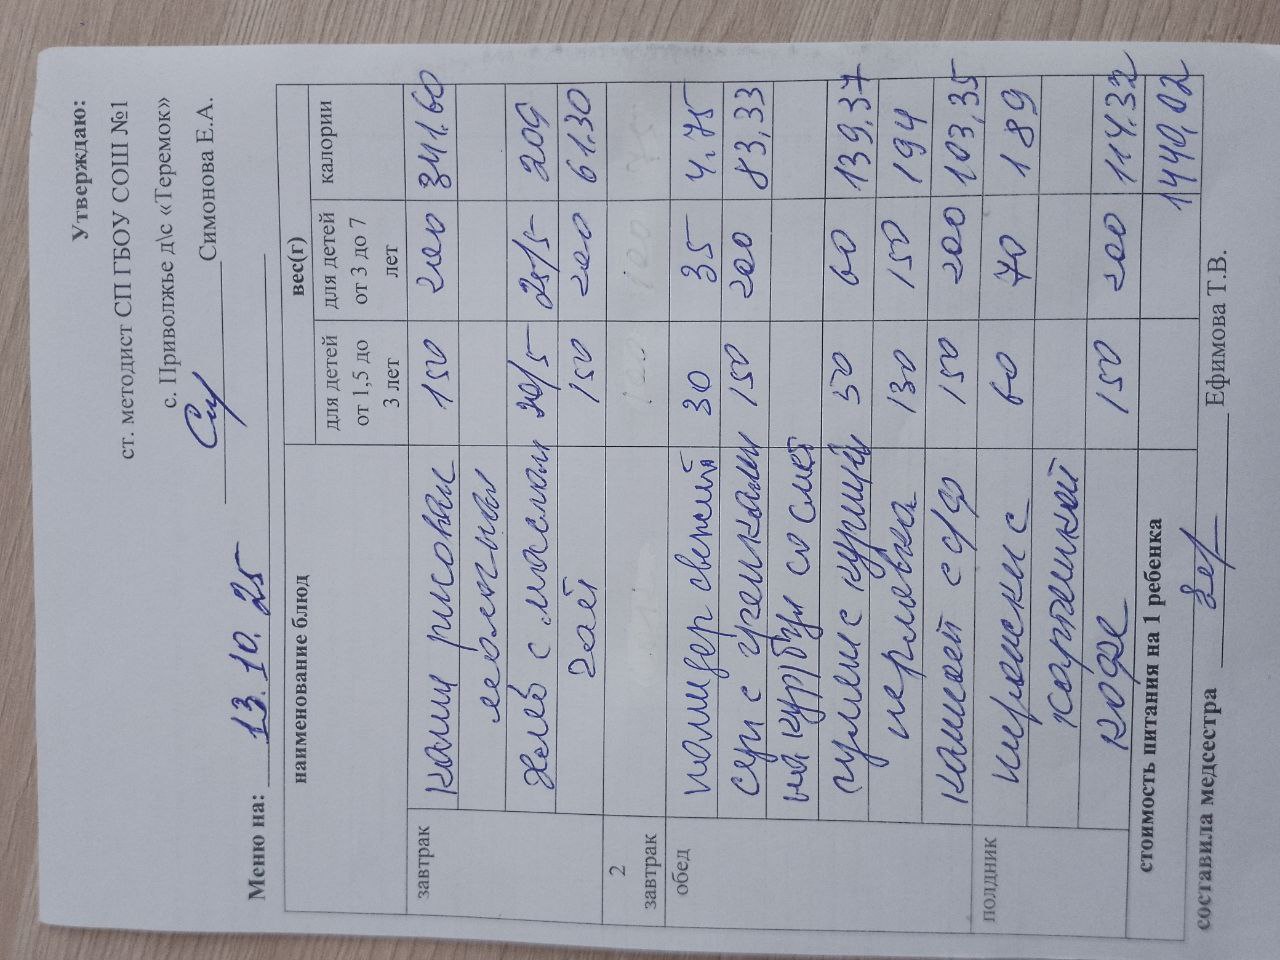 Утверждаю:
ст. методист СП ГБОУ СОШ №1
с. Приволжье д\с «Теремок»
Симонова Е.А.
Меню на: 13.10.25
наименование блюд вес(г)
для детей от 1,5 до 3 лет для детей от 3 до 7 лет калории
завтрак каша рисовая 150 200 341.60
молочная
хлеб с маслом 20/5 25/5 209
чай 150 200 61.30
2 завтрак
обед помидор свежий 30 35 4.75
суп с гренками 150 200 83,33
на кур/бул со смет
гуляш с курицей 50 60 139,37
перловка 130 150 194
компот с/ф 150 200 103,35
полдник пирожки с 60 70 189
картошкой
кофе 150 200 114.32
стоимость питания на 1 ребенка 1440,02
составила медсестра Ефимова Т.В.